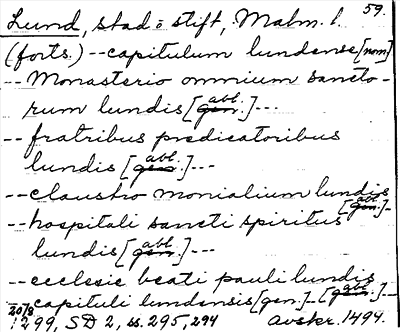 Lund, stad o stift, Malm. l. 59.
(forts.) -- capitulum lundense [nom]
-- Monasterio omnium sancto-
rum lundis [gen. abl.] ---
-- fratribus predicatoribus
lundis [gen. abl.] ---
-- claustro monialium lundis [gen. abl.] -
-- hospitali sancti spiritus
lundis [gen. abl.] ---
-- ecclesie beati pauli lundis [gen. abl.] --
capituli lundensis [gen.] --
20/8 1299, SD 2, ss. 295, 294 avskr. 1494.